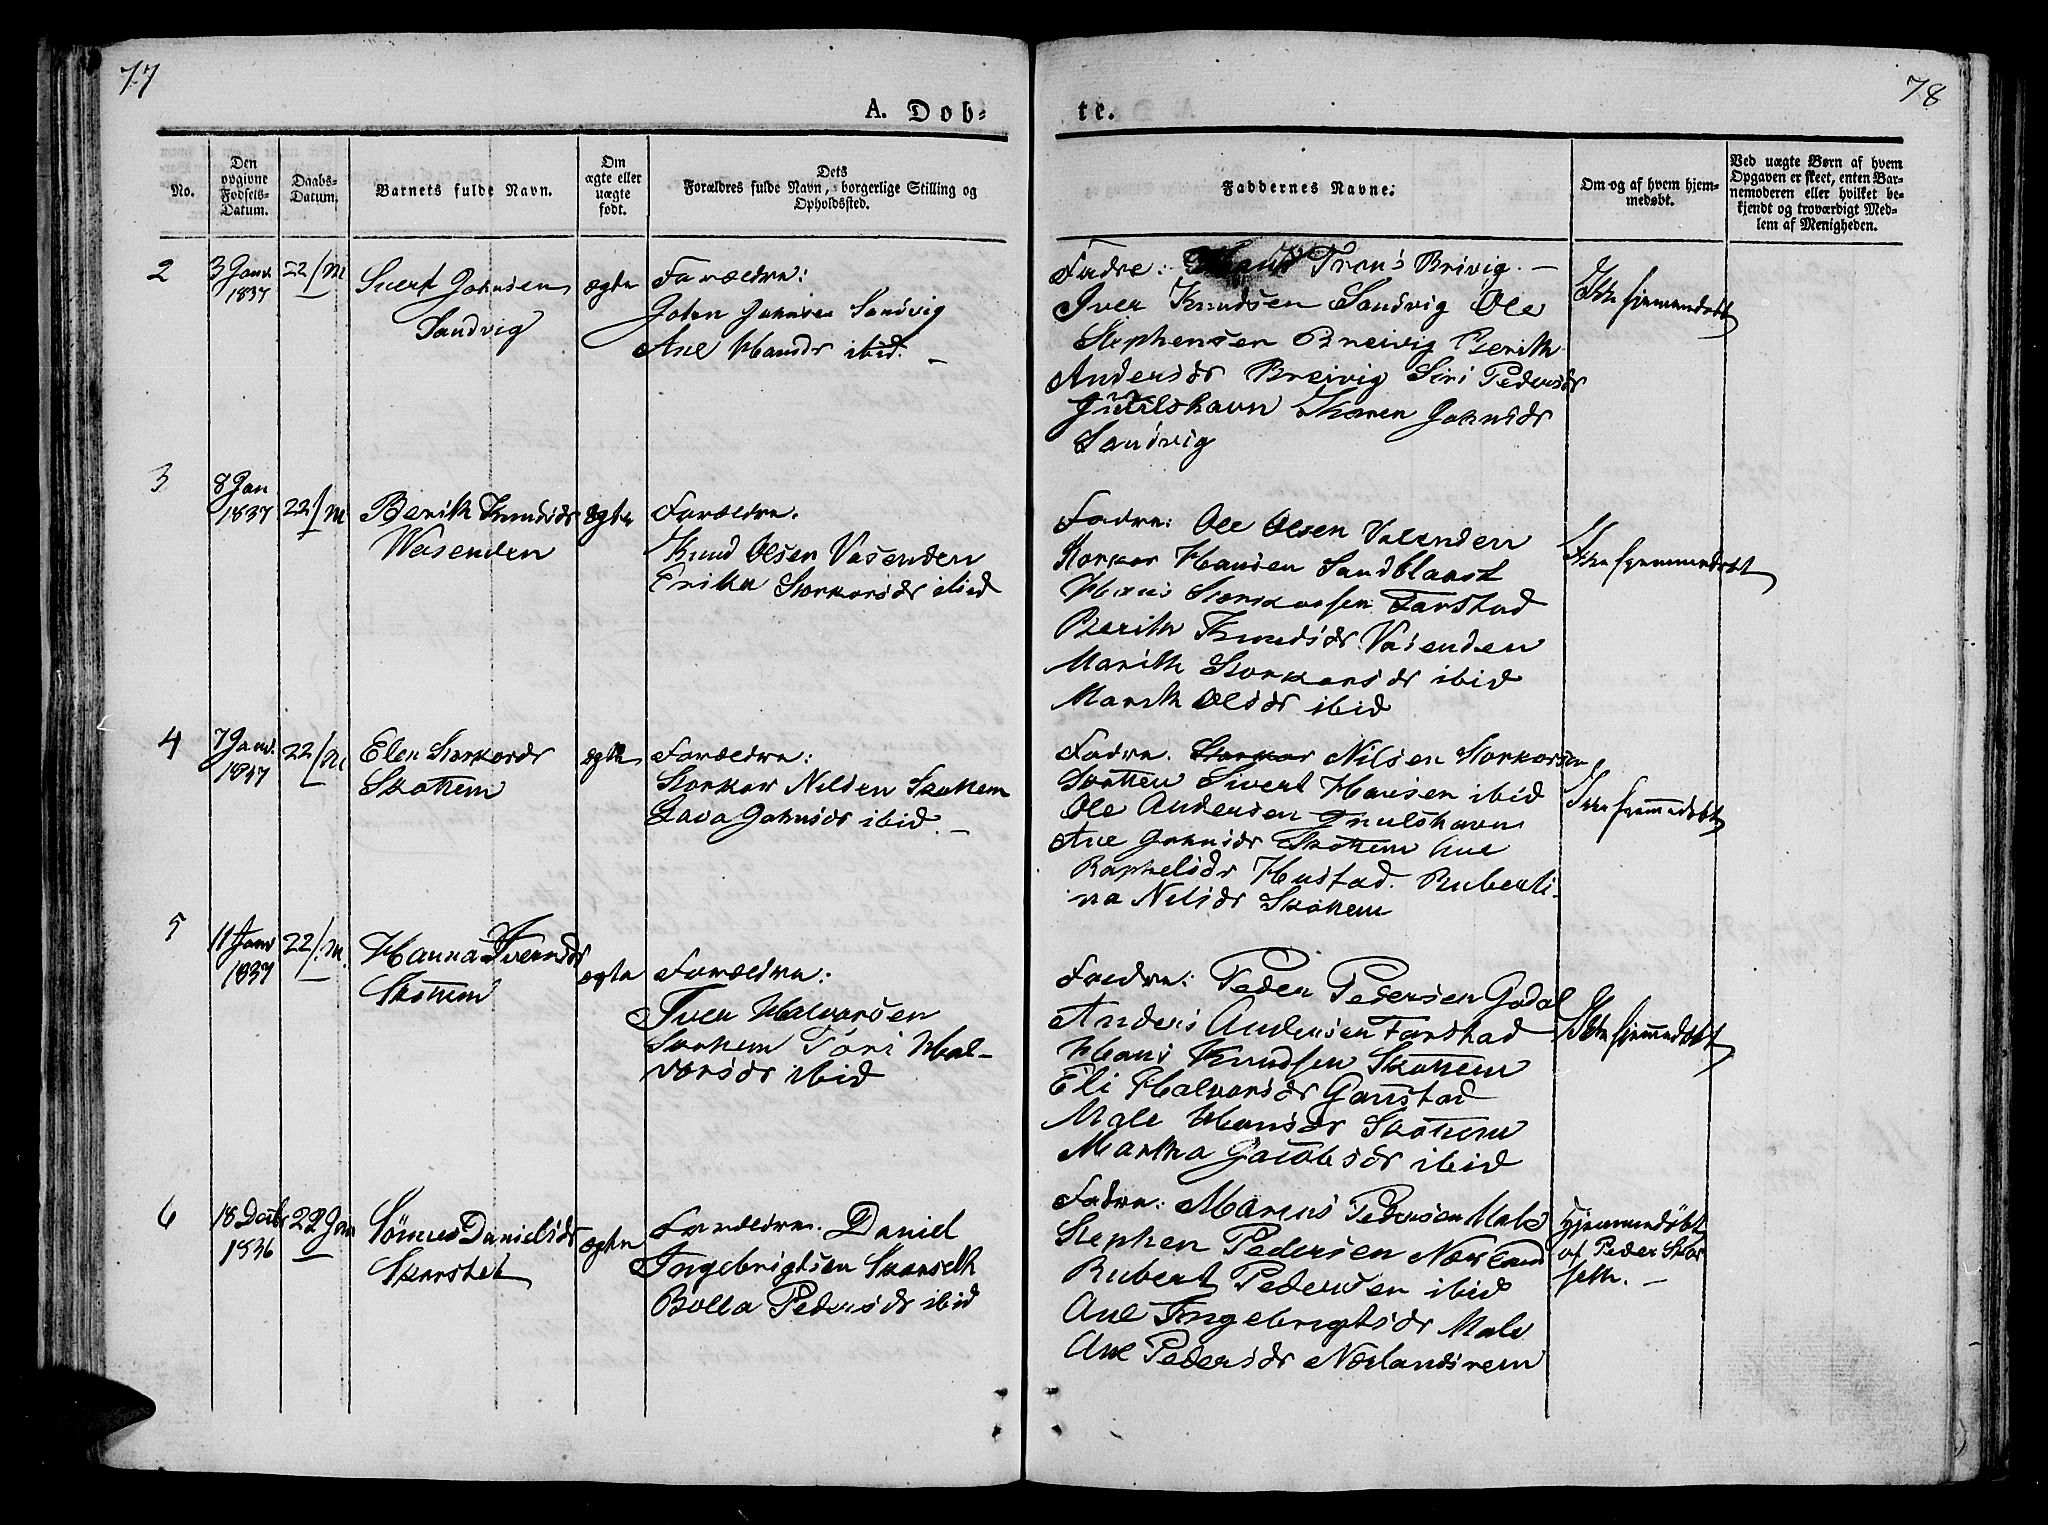 77
78
A. Dob-
te.
No.
Den
opgivne
Fødsels-
Datum.
Daabs-
Datum.
Barnets fulde Navn.
Om
ægte eller
uægte
født.
Dets
Forældres fulde Navn, borgerlige Stilling og
Opholdssted.
Faddernes Navne.
Om og af hvem hjem-
medøbt.
Ved uægte Børn af hvem
Opgaven er skeet, enten Bar-
nemoderen eller hvilket be-
kjendt og troværdigt Med-
lem af Menigheden.
2
3 Janr
1837
22/M
Sivert Johnsen
Sandvig
ægte
Forældre:
John Johnsen Sandvig
Ane Hansdr ibid. –
Fadre: Brivig. –
Iver Knudsen Sandvig Ole
Stephensen Breivig Berith
Andersdr Breivig Siri Pedersdr
Johnsdr
Sandvig
Ikke hjemmedøbt
3
8 Jan
1837
22/M
Berith Knudsdr
Wasenden
ægte
Forældre.
Knud Olsen Vasenden
Erika Storkorsdr ibid
Fadre: Ole Olsen Vasenden
Storkor Hansen Sandblaast
Hans Storkorsen Farstad
Berith Knudsdr Vasenden
Marith Storkorsdr ibid
Marith Olsdr ibid
Ikke hjemmedøbt
4
7 Janr.
1837
22/M
Elen Storkorsdr
Skottem
ægte
Forældre:
Storkor Nilsen Skottem
Lava Johnsdr ibid. –
Fadre. Storkor Nilsen Storkorsen
Skottem Sivert Hansen ibid
Ole Andersen
Ane Johnsdr Skottem Ane
Raphelsdr Hustad. Ruberti-
na Nilsdr Skottem
Ikke hjemmedøbt
5
11 Janr
1837
22/M.
Hanna Iversdr
Skottem
ægte
Forældre:
Iver Halvorsen
Skottem Tori Hal-
vorsdr ibid
Fadre: Peder Pedersen Godal
Anders Andersen Farstad
Hans Knudsen Skottem
Eli Halvorsdr Gaustad
Male Hansdr Skottem
Martha Jacobsdr ibid
Ikke hjemmedøbt
6
18 Decbr
1836
22 Jan
Danielsdr
Skarstet
ægte
Forældre. Daniel
Ingebrigtsen Skarseth
Bolla Pedersdr ibid
Fadre: Marcus Pedersen Male
Stephen Pedersen Norland
Rubert Pedersen ibid
Ane Ingebrigtsdr Male
Ane Pedersdr
Hjemmedøbt
af Peder Skar
seth. –